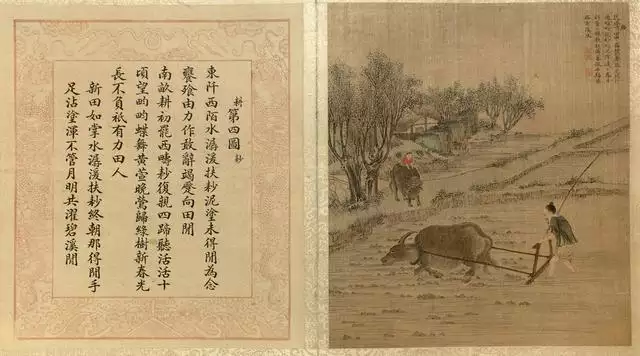 耕 第四圖 耖
東阡西陌水潺湲扶耖泥塗未得閒為念
饔飱由力作敢辭竭蹙向田間
南畝耕初罷西疇耖復親四蹄聽活活十
頃望畇畇蝶舞黃萱晚鶯歸綠樹新春光
長不負祇有力田人
新田如掌水潺湲扶耖終朝那得閒手
足沾塗渾不管月明共濯碧溪間